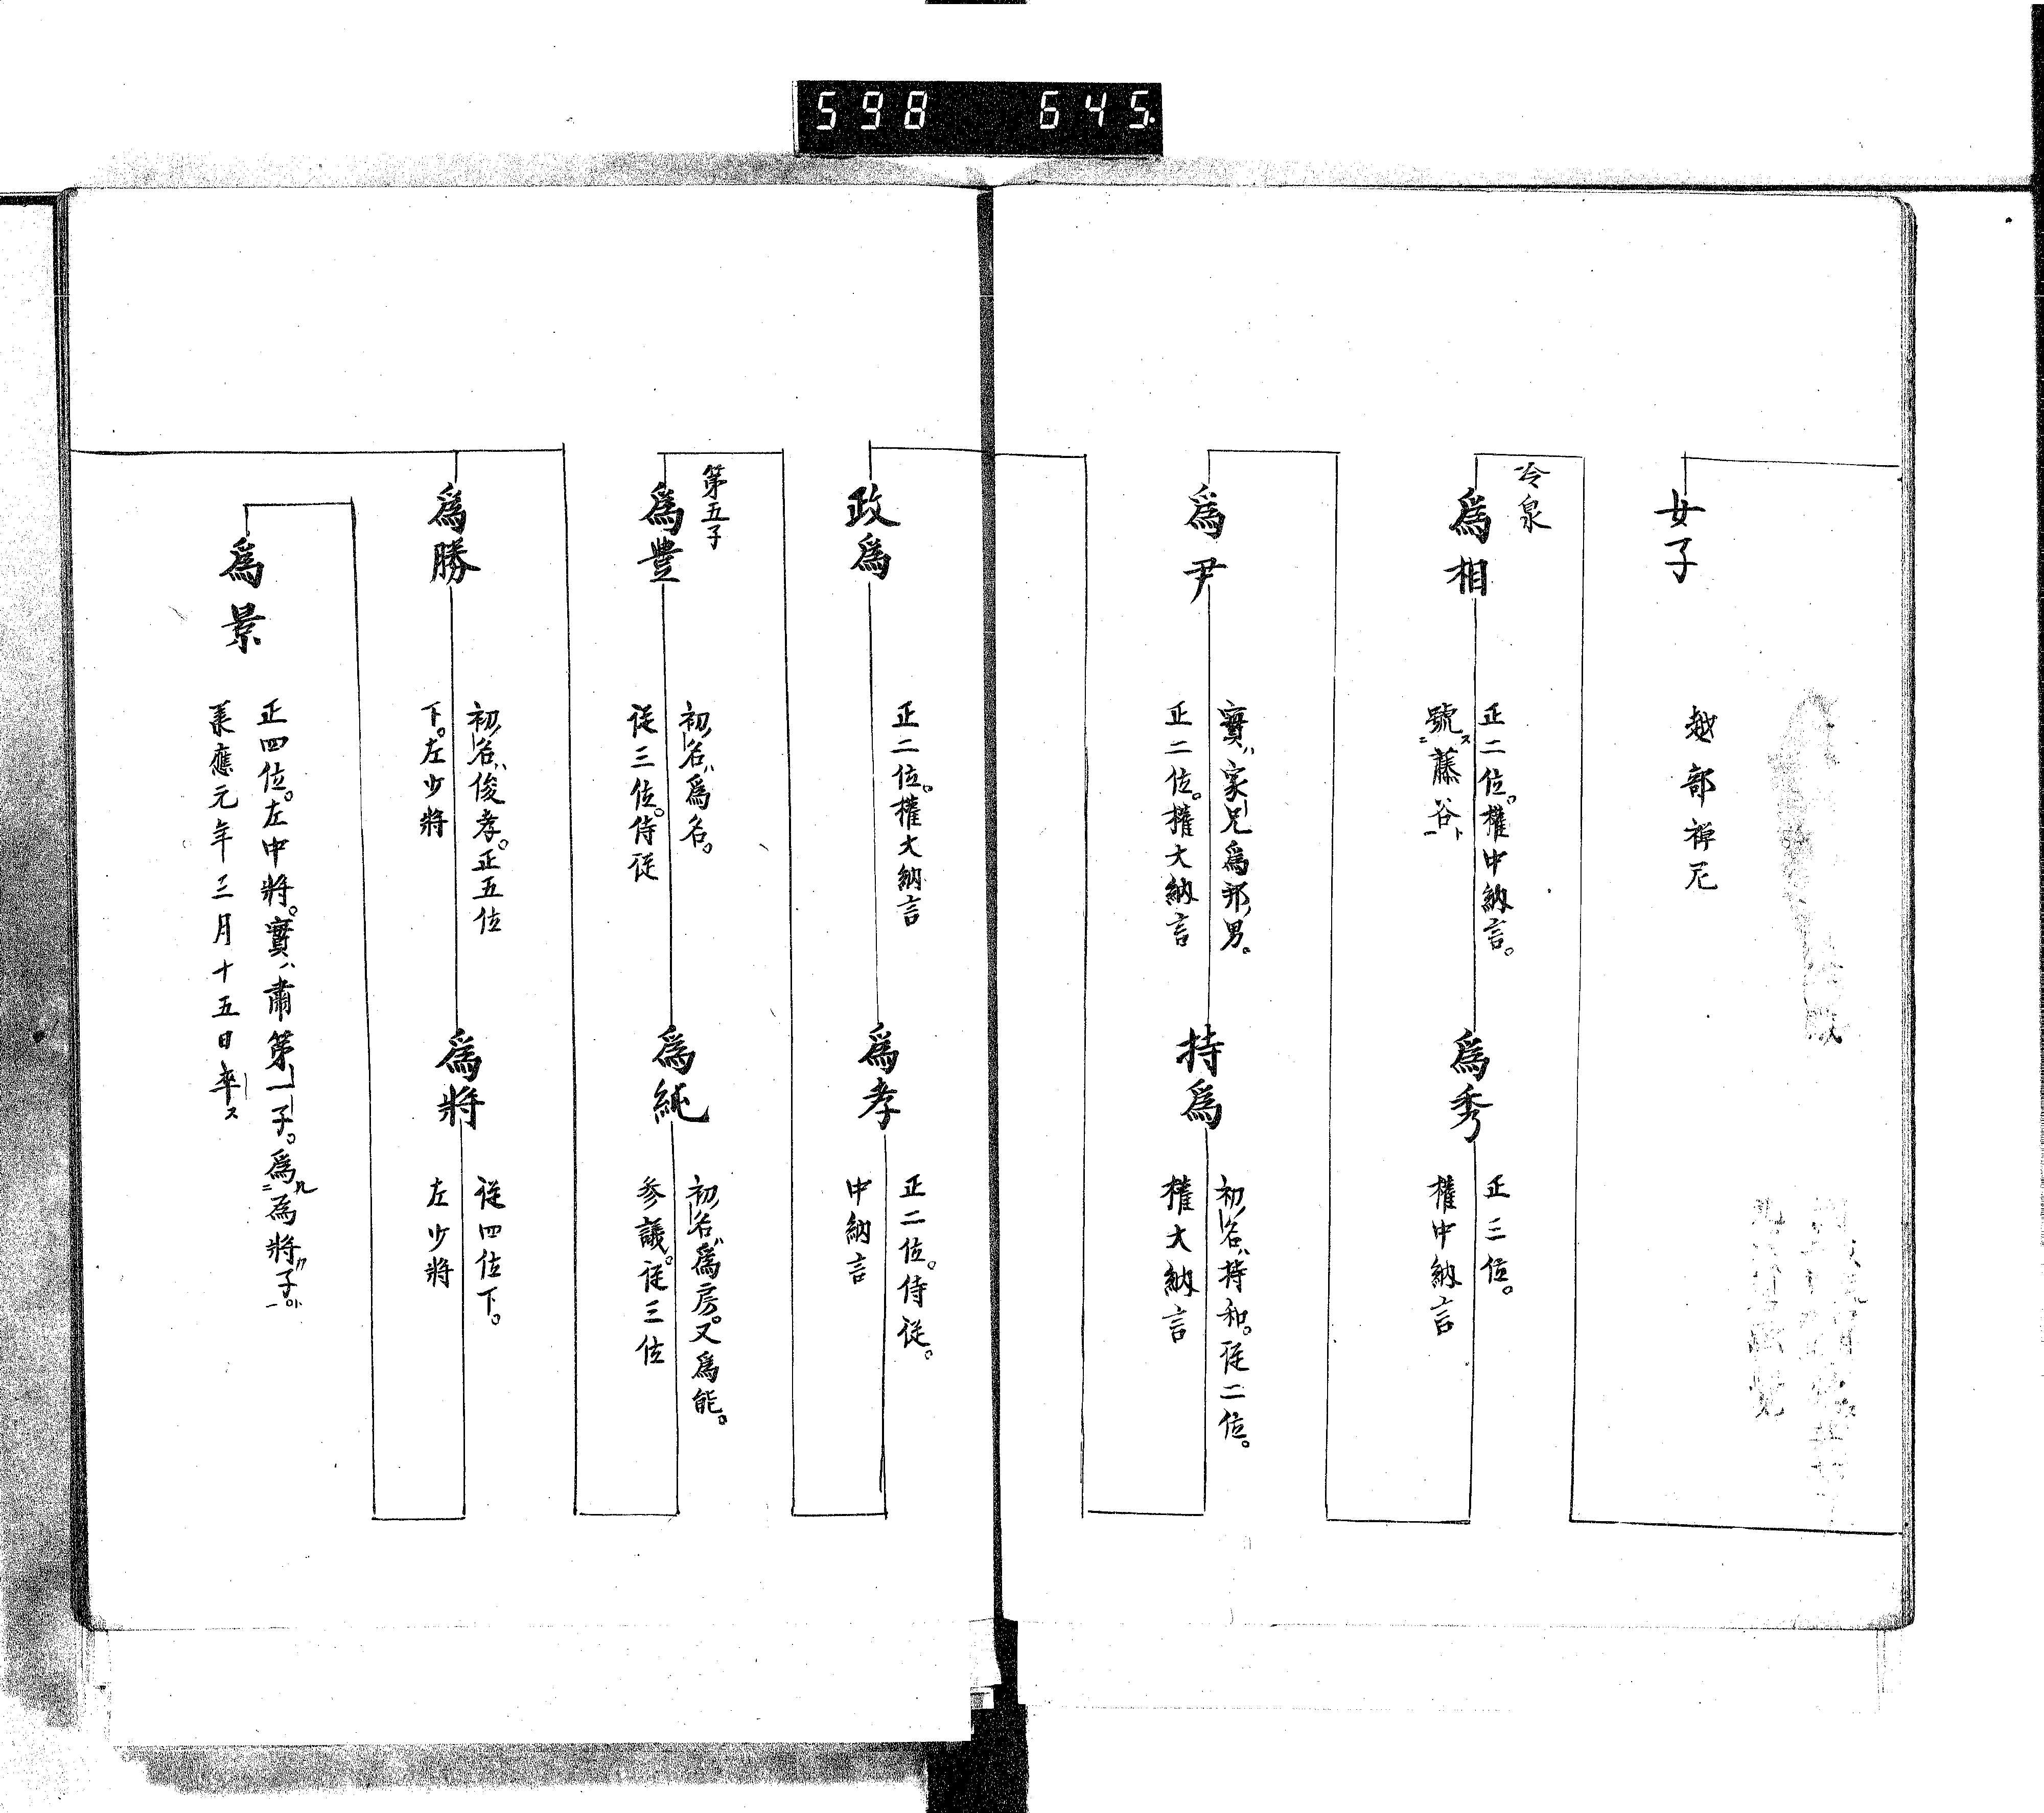 598 645
女子
越部禅尼
冷泉
爲相
正二位。權中納言。
號ス二藤谷ト一
爲秀
正三位。
權中納言
爲尹
實ハ家兄爲邦ノ男。
正二位。權大納言
持爲
初ノ名ハ持和。従二位。
權大納言
政爲
正二位。權大納言
爲孝
正二位。侍従。
中納言
第五子
爲豐
初ノ名ハ爲名。
従三位。侍従
爲純
初ノ名ハ爲房。又爲能。
参議。従三位
爲勝
初ノ名ハ俊孝。正五位
下。左少將
爲將
従四位下。
左少將
爲景
正四位。左中將。實ハ肅第一子。爲ル二爲將ガ子ト一。
承應元年三月十五日卒ス